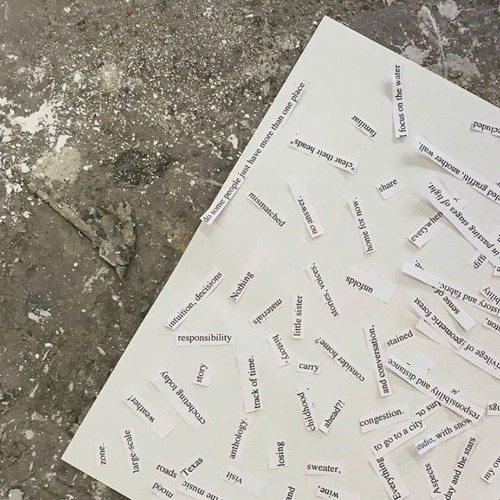 do some people just have more than one place
I focus on the water
familiar
clear their heads
share
mismatched
no answer.
home for now.
everywhere
in passing stages of light,
another wall.
Nothing
intuition, decisions
materials
little sister
stories, voices,
unfolds
some of
responsibility
story
track of time.
crushing
carry
consider home?
and conversation,
stained
privilege of
geometric forest
and distance
responsibility
crocheting today
weather!
childhood
ahead?!
congestion.
to go to a city
studio, with snow
zone.
large-scale
anthology.
losing
sweater,
Texas
roads
visit
the music
mood
wine,
and
everything
aspects
by and the stars
my